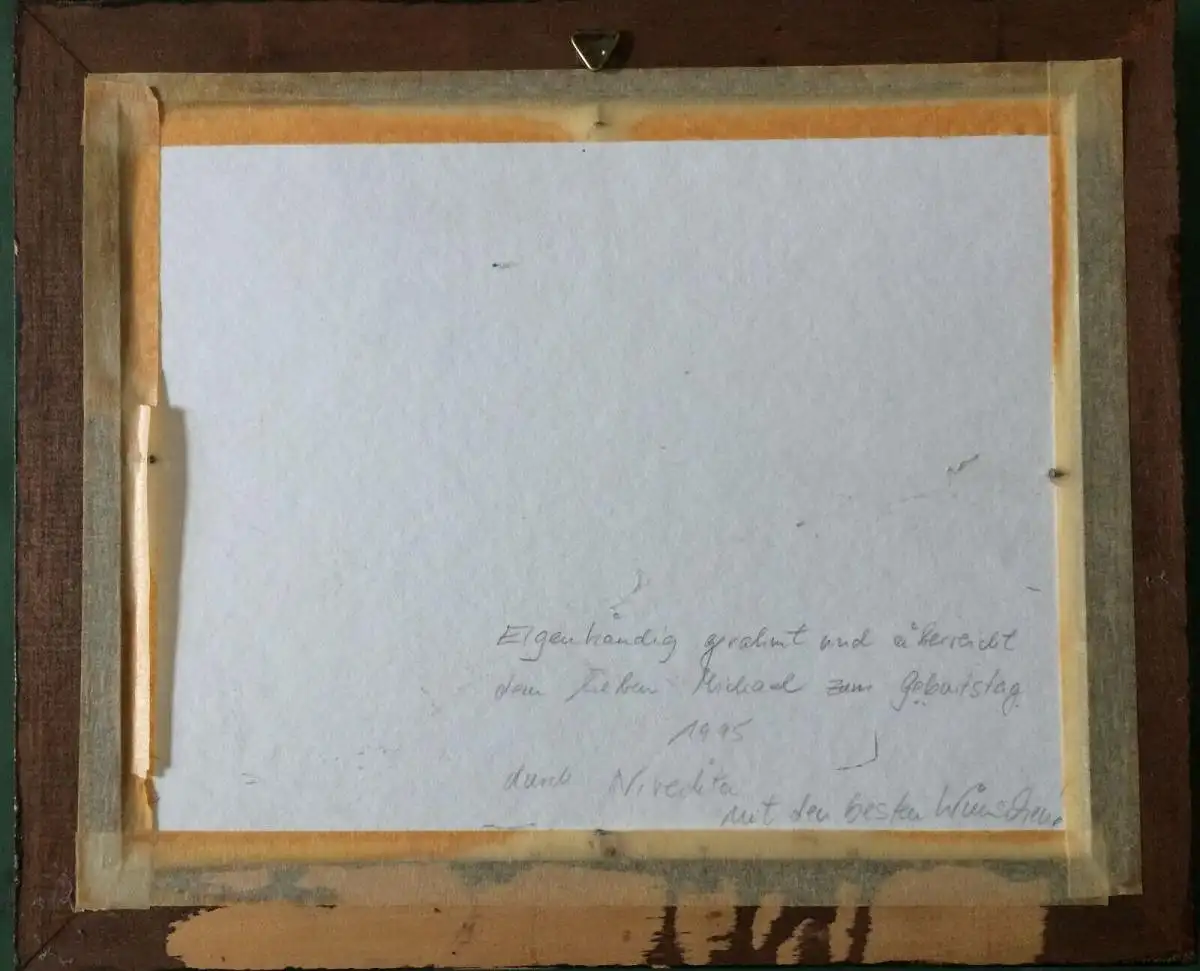 Eigenhändig gerahmt und überreicht
dem lieben Michael zum Geburtstag
1995
durch Nivedita
mit den besten Wünschen